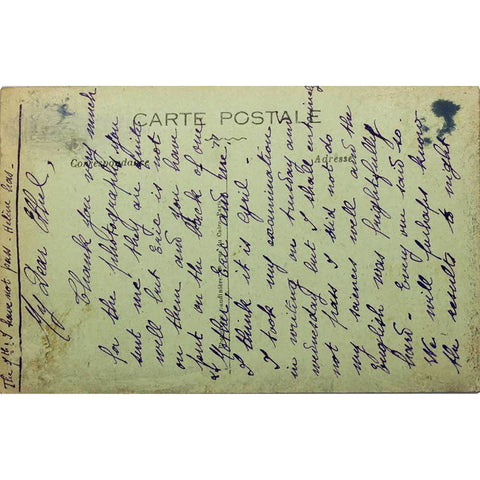 CARTE POSTALE
Correspondance
Adresse
The 8th. I have not pass. Helene has.
My Dear Ethel,
Thank you very much
for the photographs you
sent me they are quite
well but Eric is not
on them and you have
put on the back of one
of the
I think it is April.
I took my examination
in writing on tuesday and
wednesday but I
not pass I did not do
my sciences well and the
English was frightfully
hard. Every one said so.
We will perhaps know
the results to night